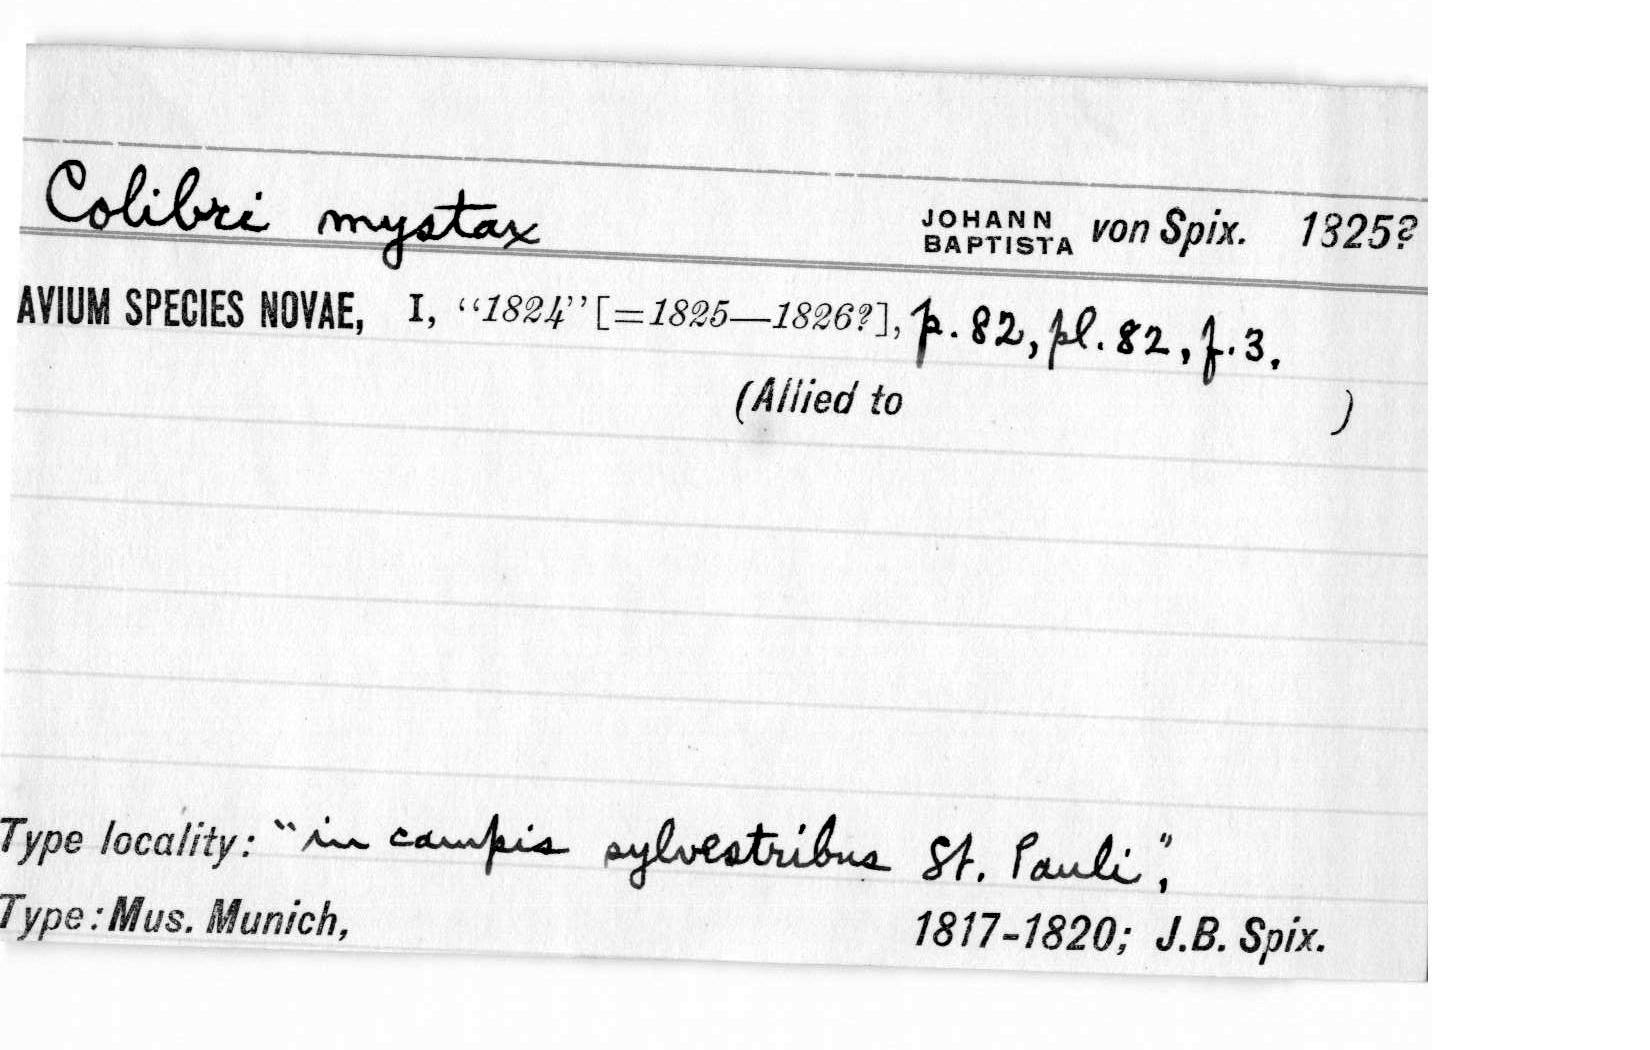 Colibri mystax JOHANN BAPTISTA von Spix. 1825?
AVIUM SPECIES NOVAE, I, “1824” [=1825—1826?], p. 82, pl. 82, f. 3.
(Allied to )
Type locality: “in campis sylvestribus St. Pauli”,
Type: Mus. Munich, 1817-1820; J.B. Spix.